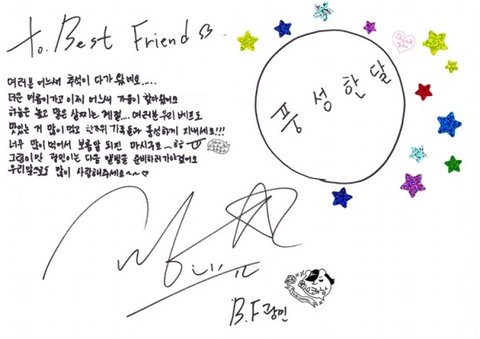 to. Best Friend
여러분 어느새 추석이 다가왔네요.....
더운 여름이가고 이제 어느새 가을이 찾아왔네요
하늘은 높고 말은 살찌는 계절... 여러분 우리 베프도
맛있는 거 많이 먹고 한가위 기족들과 풍성하게 지내세요!!!
너무 많이 먹어서 보름달 되진 마시구요...
그럼 이만 광민이는 다음 앨범을 준비하러 가야겠어요
우리앞으로도 많이 사랑해주세요~~♡
풍성한달
B.F광민